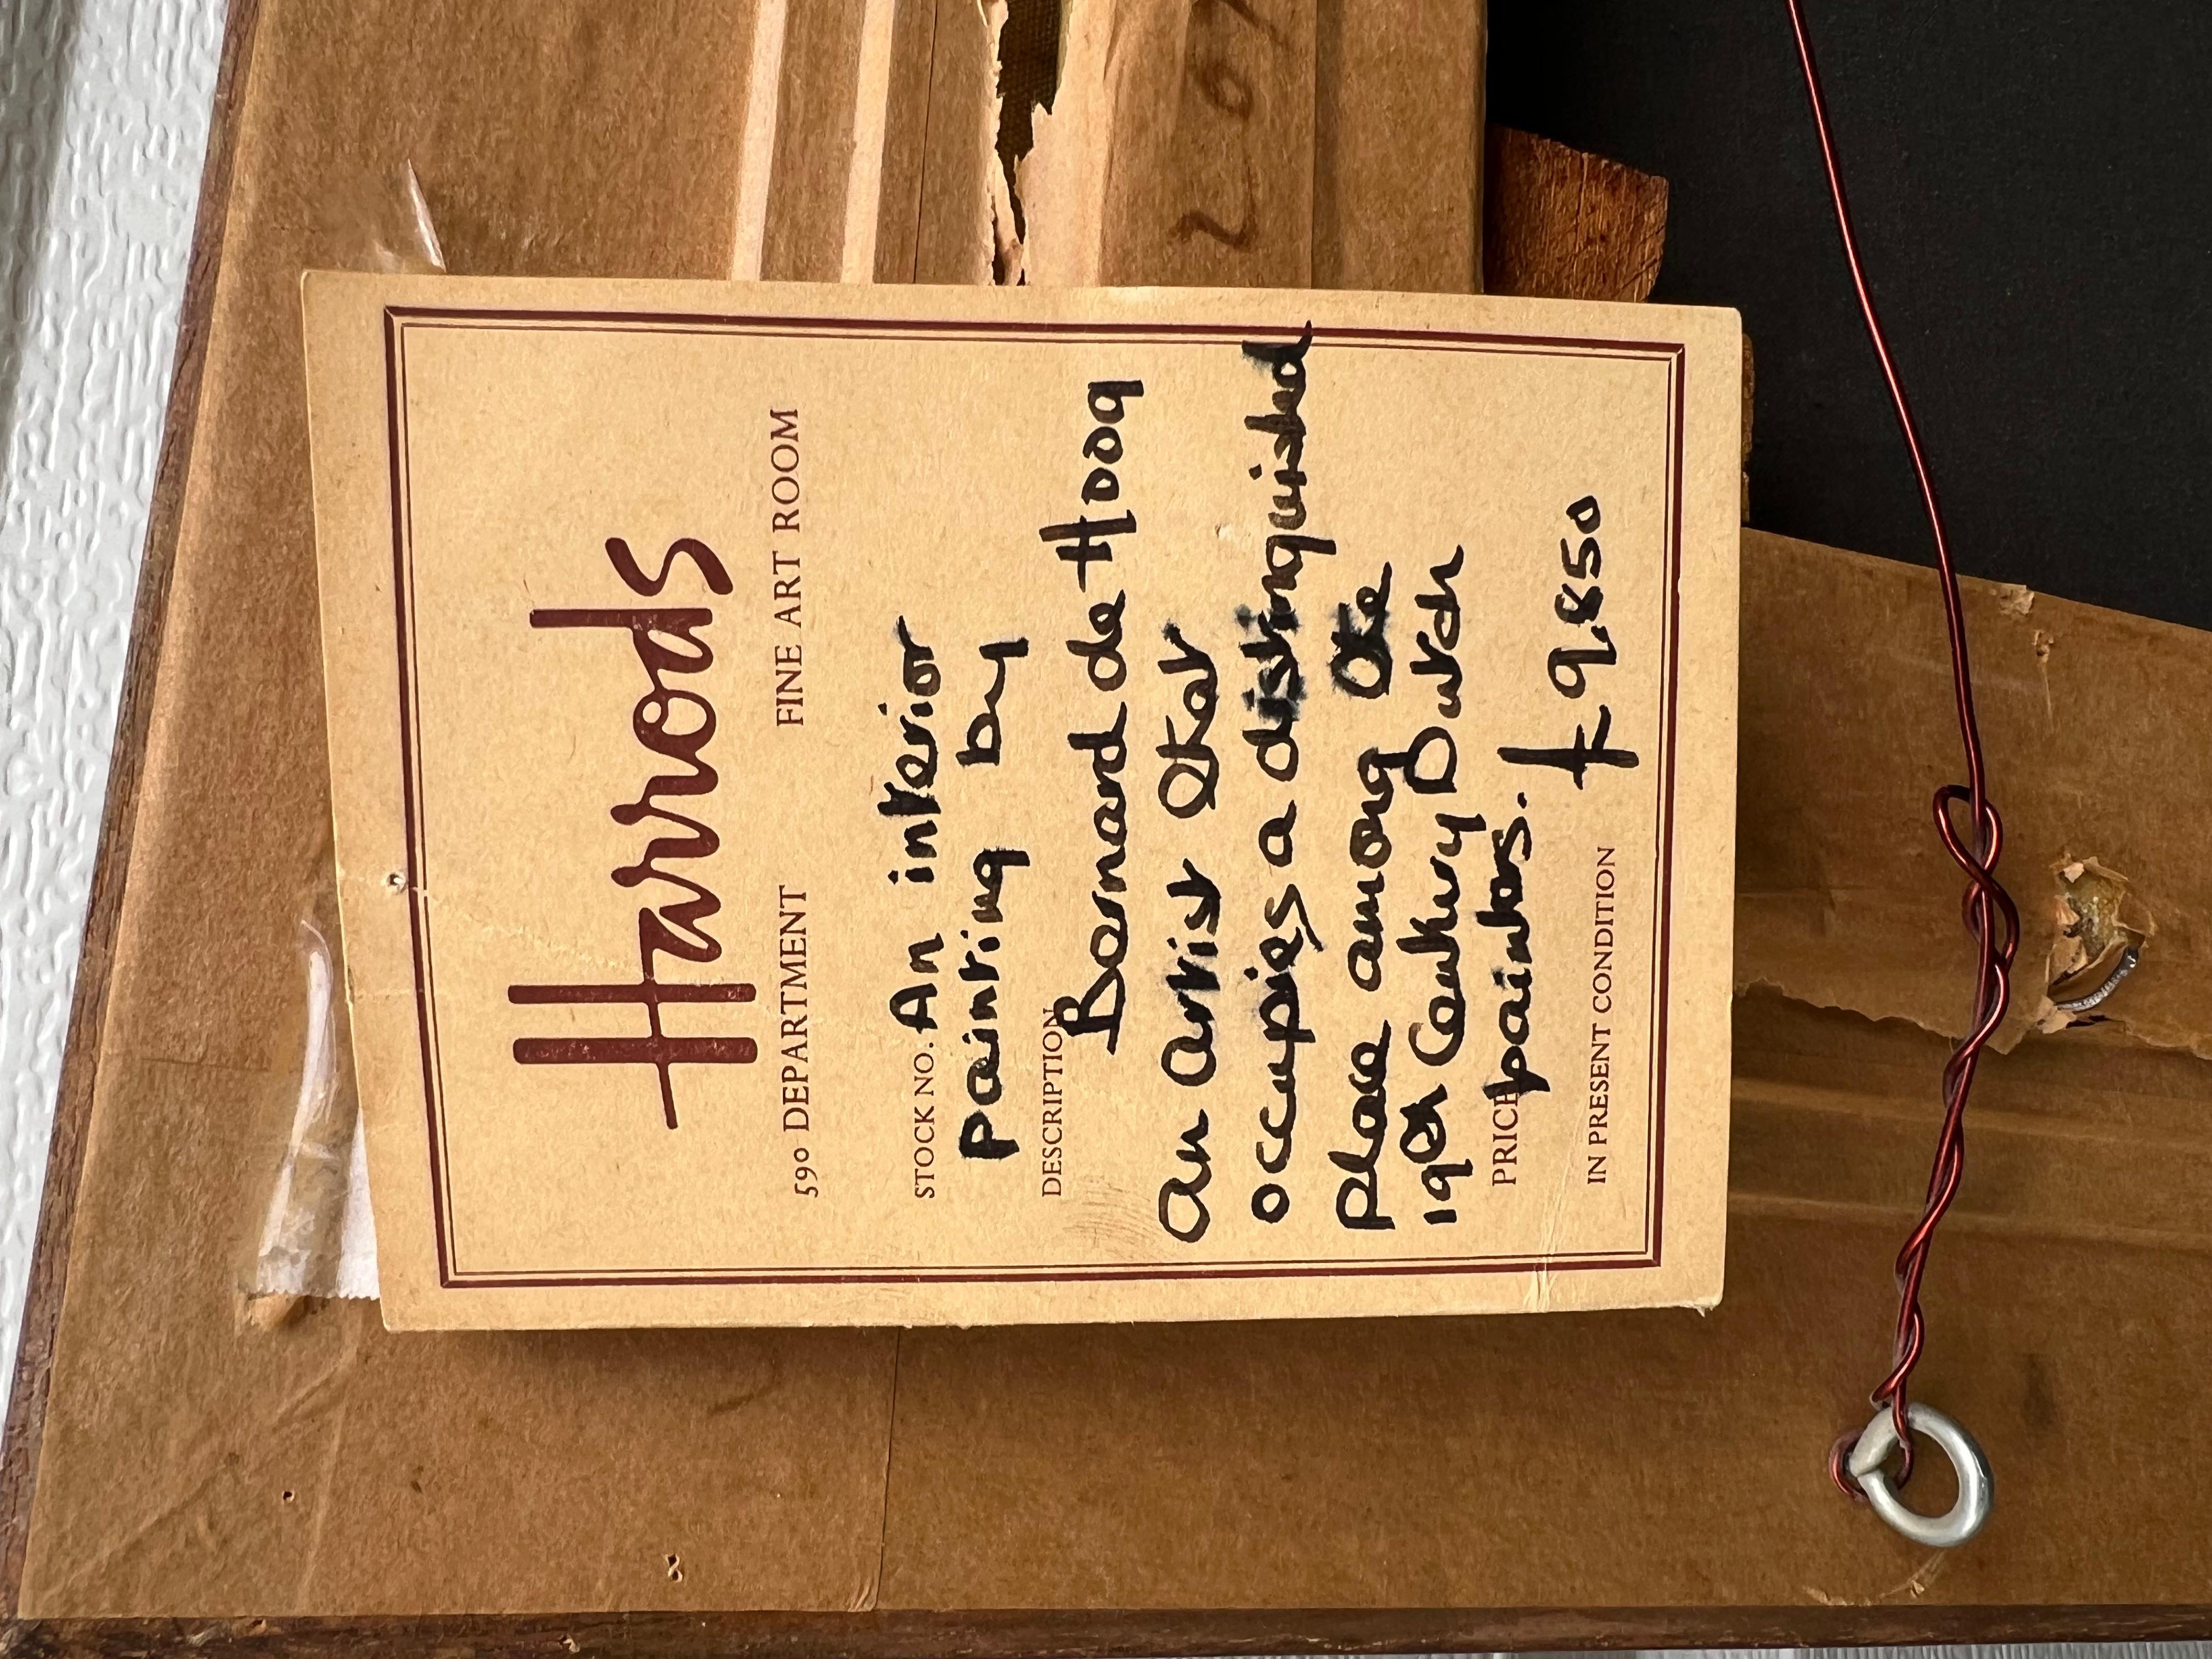 Harrods
590 DEPARTMENT FINE ART ROOM
STOCK NO. An interior
painting by
DESCRIPTION
Barnard de Hoog
An Artist that
occupies a distinguished
place among the
19th Century Dutch
PRICE painters.
£9,850
IN PRESENT CONDITION